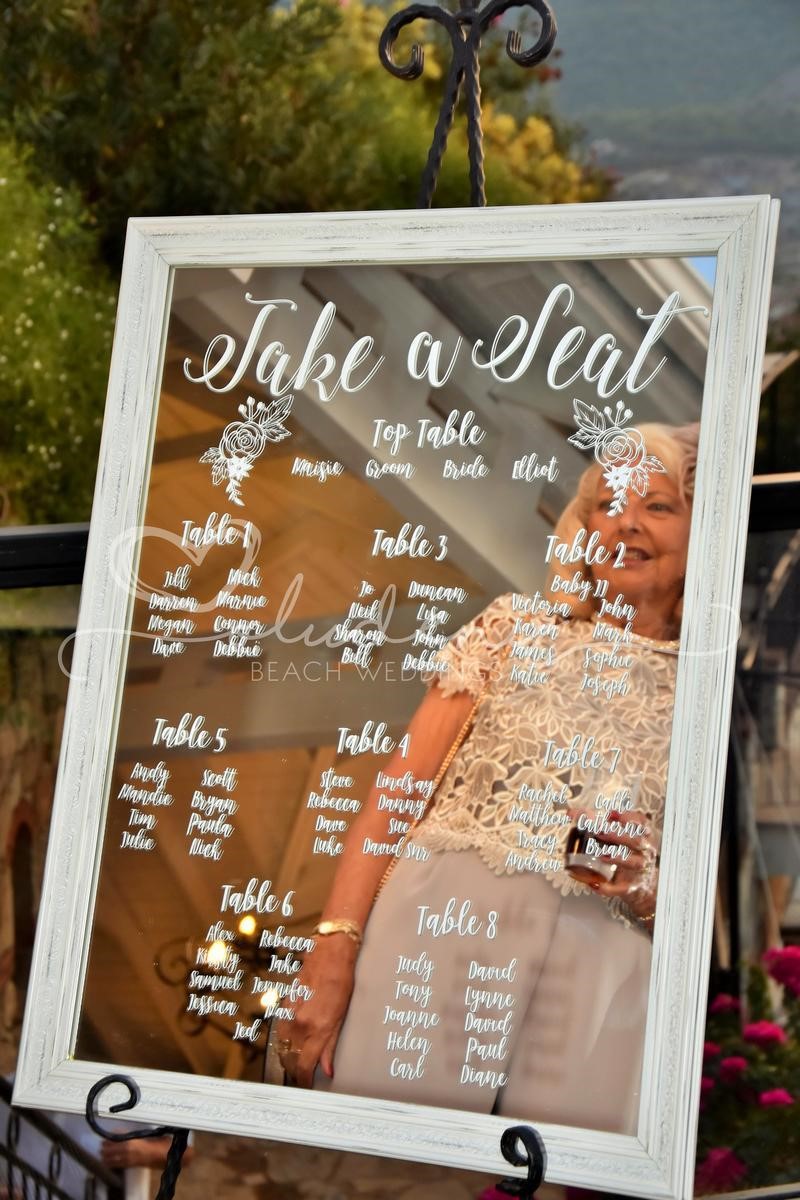 Take a Seat
Top Table
Maisie Groom Bride Elliot
Table 1
Jill Mick
Darren Marnie
Megan Connor
Dave Debbie
Table 3
Jo Duncan
Neil Lisa
Sharon John
Bill Debbie
Table 2
Baby JJ
Victoria John
Karen Mark
James Sophie
Katie Joseph
BEACH WEDDINGS
Table 5
Andy Scott
Mandie Bryan
Tim Paula
Julie Nick
Table 4
Steve Lindsay
Rebecca Danny
Dave Sue
Luke David Snr
Table 7
Rachel Calli
Matthew Catherine
Tracy Brian
Andrew
Table 6
Alex Rebecca
Kirsty Jake
Samuel Jennifer
Jessica Max
Jed
Table 8
Judy David
Tony Lynne
Joanne David
Helen Paul
Carl Diane